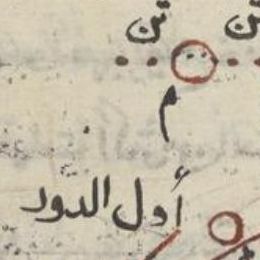 تن تن
م
أول الدور